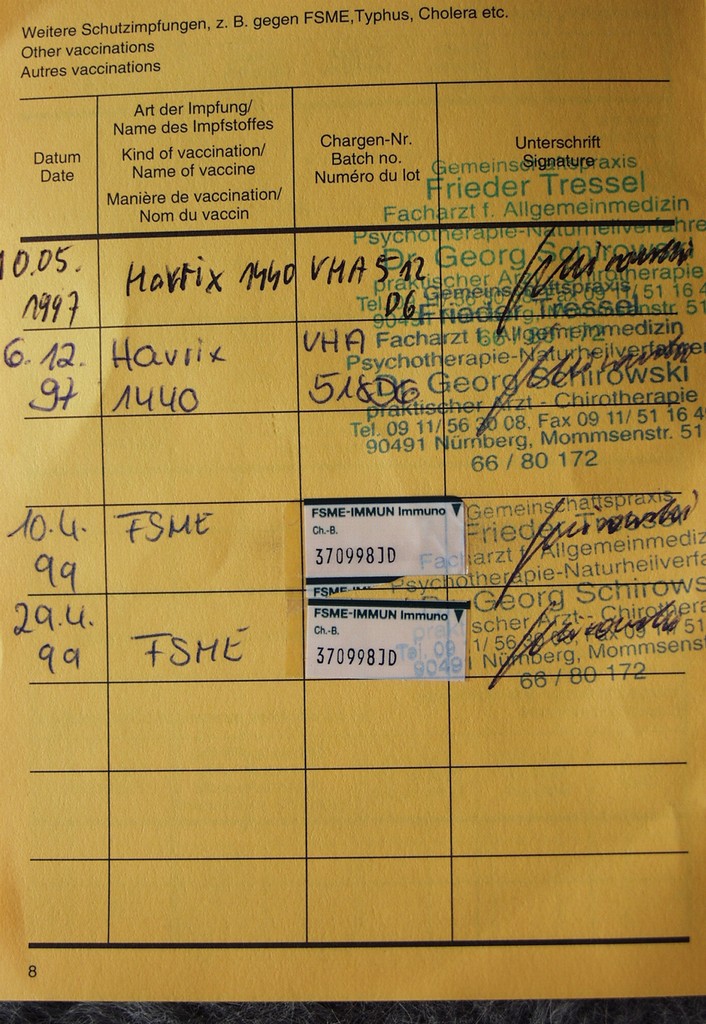 Weitere Schutzimpfungen, z. B. gegen FSME, Typhus, Cholera etc.
Other vaccinations
Autres vaccinations
Datum
Date
Art der Impfung/
Name des Impfstoffes
Kind of vaccination/
Name of vaccine
Manière de vaccination/
Nom du vaccin
Chargen-Nr.
Batch no.
Numéro du lot
Unterschrift
Signature
Gemeinschaftspraxis
Frieder Tressel
Facharzt f. Allgemeinmedizin
Psychotherapie-Naturheilverfahre
Dr. Georg Schirows
praktischer Arzt - Chirotherapie
10.05.
1997
Havrix 1440
VHA 512
D6
Gemeinschaftspraxis
Frieder Tressel
66 / 80 172
6.12.
97
Havrix
1440
VHA
518D6
Facharzt f. Allgemeinmedizin
Psychotherapie-Naturheilverfahren
Dr. Georg Schirowski
praktischer Arzt - Chirotherapie
Tel. 09 11/ 56 30 08, Fax 09 11/ 51 16 4
90491 Nürnberg, Mommsenstr. 51
66 / 80 172
10.4.
99
FSME
FSME-IMMUN Immuno
Ch.-B.
370998JD
FSME-IM
Gemeinschaftspraxis
Frieder
Facharzt f. Allgemeinmediz
Psychotherapie-Naturheilverfa
29.4.
99
FSME
FSME-IMMUN Immuno
Ch.-B.
370998JD
Georg Schirows
scher Arzt - Chirothera
Nürnberg, Mommsenst
66 / 80 172
8